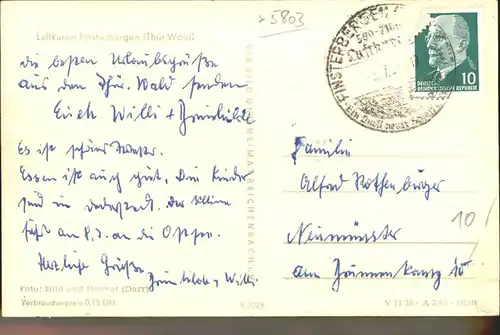 x5803
Luftkurort Finsterbergen (Thür. Wald)
die besten Urlaubsgrüße
aus dem Thür. Wald senden
Euch Willi + Grimhilde
Es ist schönes Wetter.
Essen ist auch gut. Die Kinder
sind in
Der Kleine
fährt am 8.7. an die Ostsee.
Herzliche Grüße
Willi
Foto: Bild und Heimat (Darr)
Verbraucherpreis 0,15 DM
VEB BILD UND HEIMAT REICHENBACH
FINSTERBERGEN
DEUTSCHE
DEMOKRATISCHE REPUBLIK
10
Familie
Alfred Rothenburger
Neumünster
am
10/
DDR